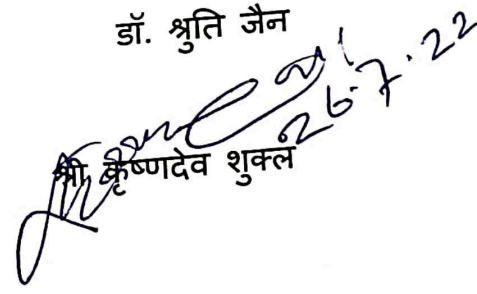 डॉ. श्रुति जैन
26.7.22
श्री कृष्णदेव शुक्ल